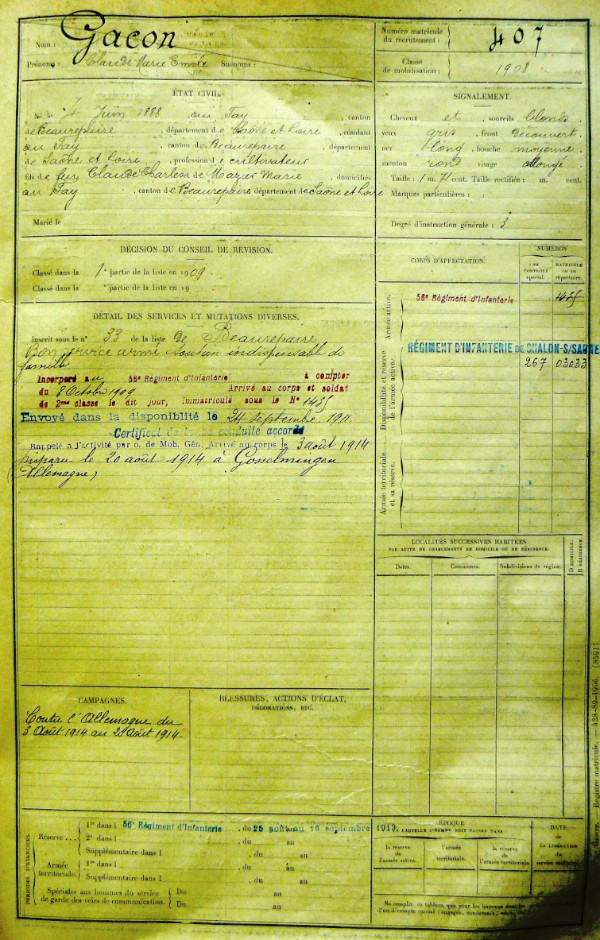 Nom : Gacon
Prénoms : Claude Marie Surnoms :
Numéro matricule du recrutement : 407
Classe de mobilisation : 1908
ÉTAT CIVIL.
Né le 4 Juin 1888 au Fay, canton
de Beaurepaire, département de Saône et Loire, résidant
au Fay, canton de Beaurepaire, département
de Saône et Loire, profession de cultivateur
fils de feu Claude Charles et de Mazier Marie, domiciliés
au Fay, canton de Beaurepaire département de Saône et Loire
Marié le
SIGNALEMENT.
Cheveux et sourcils blonds
yeux gris, front découvert
nez long, bouche moyenne
menton rond visage allongé
Taille : 1 m. 71 cent. Taille rectifiée : m. cent.
Marques particulières :
Degré d'instruction générale : 3
DÉCISION DU CONSEIL DE RÉVISION.
Classé dans la 1e partie de la liste en 1909
Classé dans la partie de la liste en 19
DÉTAIL DES SERVICES ET MUTATIONS DIVERSES.
Inscrit sous le n° 33 de la liste de Beaurepaire
Bon service armé soutien indispensable de
famille
Incorporé au 56e Régiment d'Infanterie à compter
du 8 Octobre 1909 Arrivé au corps et soldat
de 2me classe le dit jour, immatriculé sous le N° 1435
Envoyé dans la disponibilité le 24 septembre 1911
Certificat de bonne conduite accordé
Rappelé à l'activité par o. de Mob. Gén. Arrivé au corps le 3 août 1914
Disparu le 20 août 1914 à Gosselmingen
(Allemagne)
CORPS D'AFFECTATION.
NUMÉROS
AU CONTRÔLE spécial.
MATRICULE OU AU répertoire.
Armée active.
56e Régiment d'Infanterie 1435
Disponibilité et réserve de l'armée active.
RÉGIMENT D'INFANTERIE DE CHALON-S/SAONE
267 03033
Armée territoriale et sa réserve.
LOCALITÉS SUCCESSIVES HABITÉES
PAR SUITE DE CHANGEMENTS DE DOMICILE OU DE RÉSIDENCE.
Dates. Communes. Subdivisions de région. D DOMICILE. R RÉSIDENCE.
CAMPAGNES.
Contre l'Allemagne du
3 Août 1914 au 21 Août 1914.
BLESSURES, ACTIONS D'ÉCLAT,
DÉCORATIONS, ETC.
PÉRIODES D'EXERCICES
Réserve
1re dans l 56e Régiment d'Infanterie, du 25 août au 16 septembre 1913.
2e dans l , du au
Supplémentaire dans l , du au
Armée territoriale.
1re dans l , du au
Supplémentaire dans l , du au
Spéciales aux hommes du service
de garde des voies de communication.
Du au
Du au
ÉPOQUE
À LAQUELLE L'HOMME DOIT PASSER DANS
la réserve de l'armée active.
l'armée territoriale.
la réserve de l'armée territoriale.
DATE DE LA LIBÉRATION du service militaire.